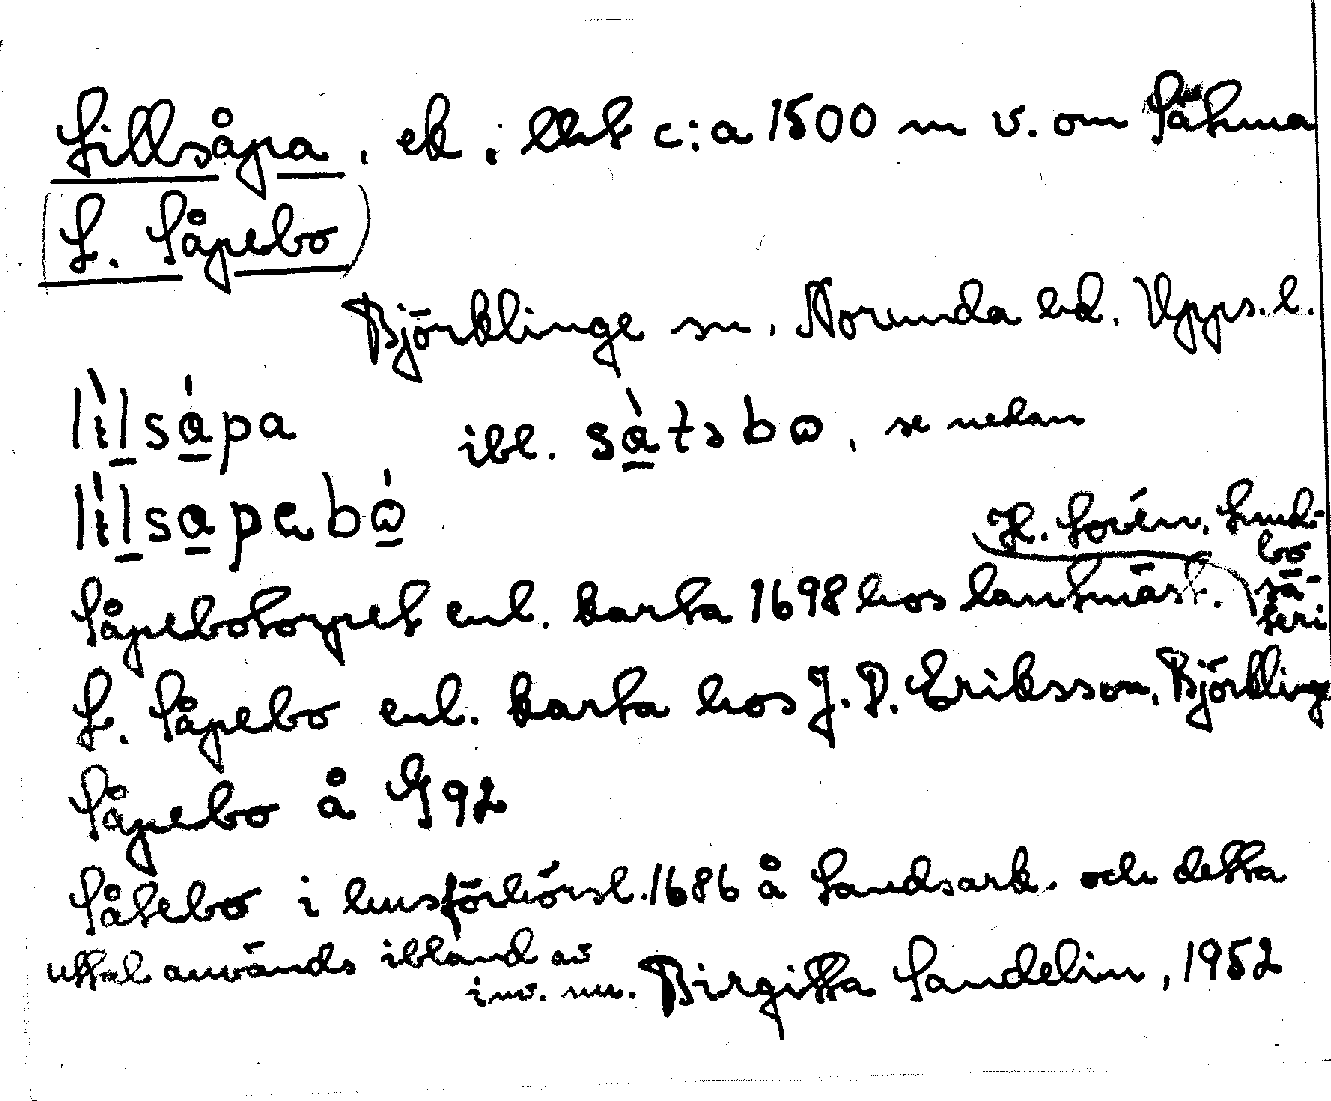 Lillsåpa, ek, lht c:a 1500 m v. om Sätuna
(L. Såpebo)
Björklinge sn, Norunda hd, Upps. l.
lìlsápa ibl. sàtsbo, se nedan
lìlsapebó
H. Lorén, Lund-
bo
Såpebotorpet enl. karta 1698 hos lantmät. sä-
teri
L. Såpebo enl. karta hos J. P. Eriksson, Björklinge
Såpebo å G 92
Såtebo i husförhörsl. 1686 å Landsark. och detta
uttal används ibland av
inv. nu. Birgitta Sandelin, 1952